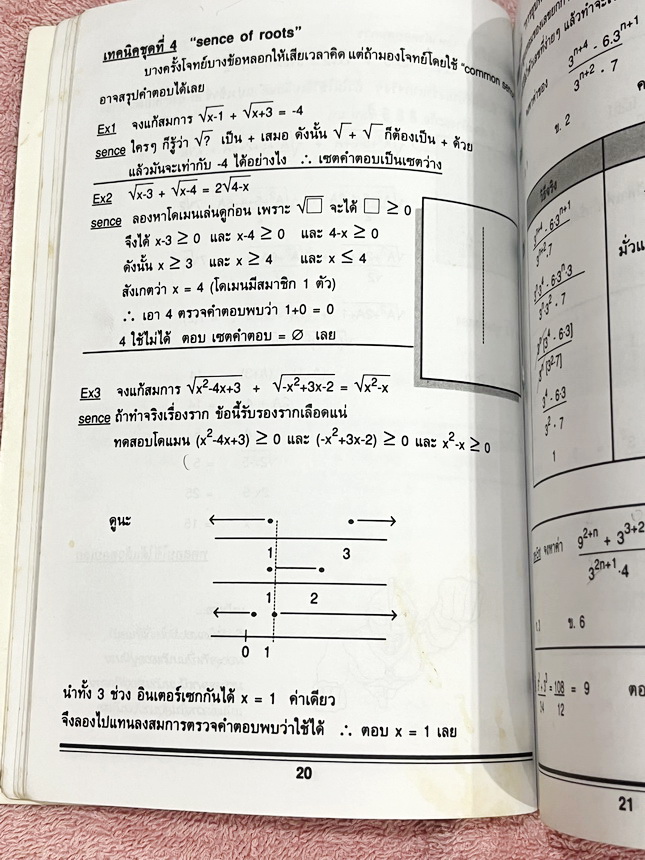 เทคนิคชุดที่ 4 "sence of roots"
บางครั้งโจทย์บางข้อหลอกให้เสียเวลาคิด แต่ถ้ามองโจทย์โดยใช้ "common
อาจสรุปคำตอบได้เลย
Ex1 จงแก้สมการ √x-1 + √x+3 = -4
sence ใครๆ ก็รู้ว่า √? เป็น + เสมอ ดังนั้น √ + √ ก็ต้องเป็น + ด้วย
แล้วมันจะเท่ากับ -4 ได้อย่างไง ∴ เซตคำตอบเป็นเซตว่าง
Ex2 √x-3 + √x-4 = 2√4-x
sence ลองหาโดเมนเล่นดูก่อน เพราะ √□ จะได้ □ ≥ 0
จึงได้ x-3 ≥ 0 และ x-4 ≥ 0 และ 4-x ≥ 0
ดังนั้น x ≥ 3 และ x ≥ 4 และ x ≤ 4
สังเกตว่า x = 4 (โดเมนมีสมาชิก 1 ตัว)
∴ เอา 4 ตรวจคำตอบพบว่า 1+0 = 0
4 ใช้ไม่ได้ ตอบ เซตคำตอบ = ∅ เลย
Ex3 จงแก้สมการ √x²-4x+3 + √-x²+3x-2 = √x²-x
sence ถ้าทำจริงเรื่องราก ข้อนี้รับรองรากเลือดแน่
ทดสอบโดแมน (x²-4x+3) ≥ 0 และ (-x²+3x-2) ≥ 0 และ x²-x ≥ 0
(
ดูนะ
1 3
1 2
0 1
นำทั้ง 3 ช่วง อินเตอร์เซกกันได้ x = 1 ค่าเดียว
จึงลองไปแทนลงสมการตรวจคำตอบพบว่าใช้ได้ ∴ ตอบ x = 1 เลย
20
3ⁿ⁺⁴ - 6.3ⁿ⁺¹
3ⁿ⁺² . 7
ข. 2
วิธีจริง
3ⁿ⁺⁴ - 6·3ⁿ⁺¹
3ⁿ⁺².7
3ⁿ3⁴ - 6·3ⁿ·3
3ⁿ3² · 7
3ⁿ[3⁴ - 6·3]
3ⁿ[3²·7]
3⁴ - 6·3
3² · 7
1
จงหาค่า
9²⁺ⁿ + 3³⁺²
3²ⁿ⁺¹·4
ข. 6
108
12
= 9
ตอ
21